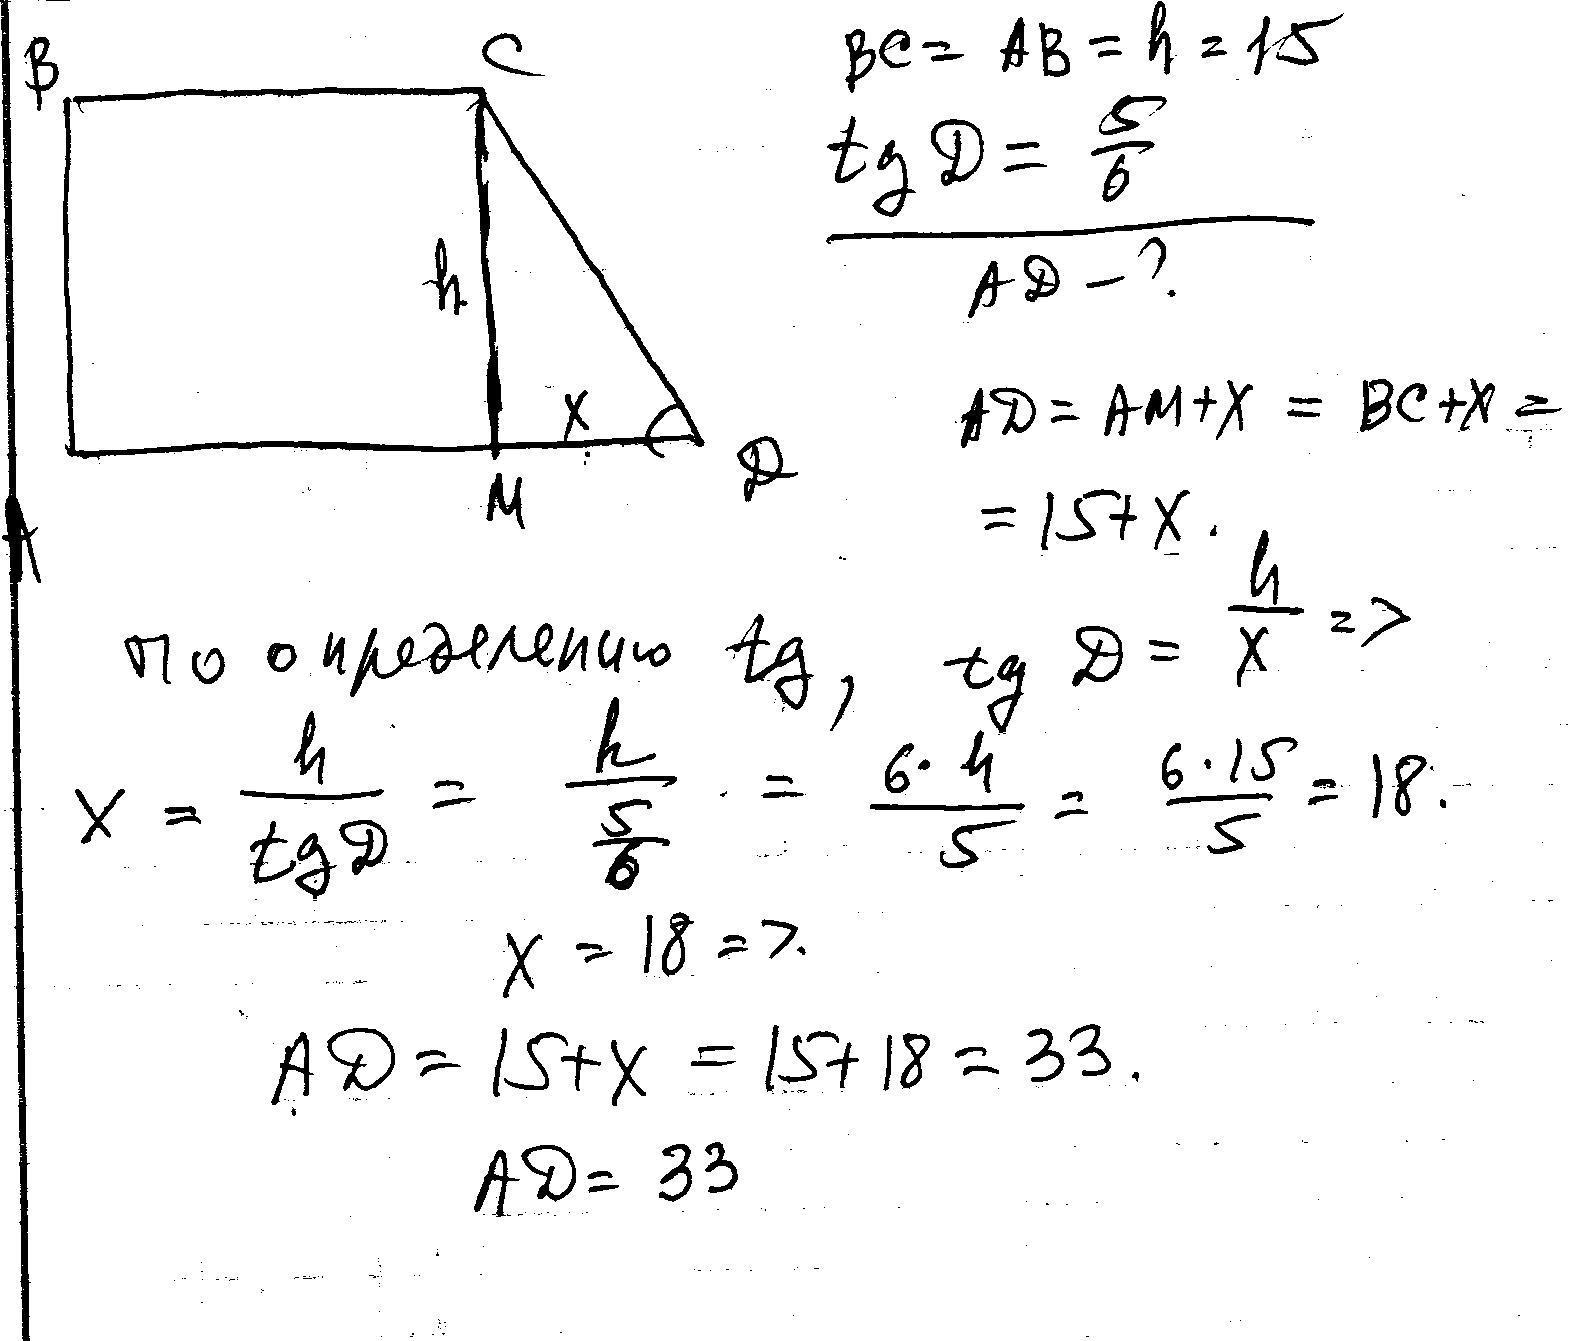 B
C
h
X
A
M
D
BC = AB = h = 15
tg D = 5/6
AD - ?
AD = AM + X = BC + X =
= 15 + X.
по определению tg, tg D = h/X =>
X = h/tg D = h/(5/6) = 6·h/5 = 6·15/5 = 18.
X = 18 =>.
AD = 15 + X = 15 + 18 = 33.
AD = 33